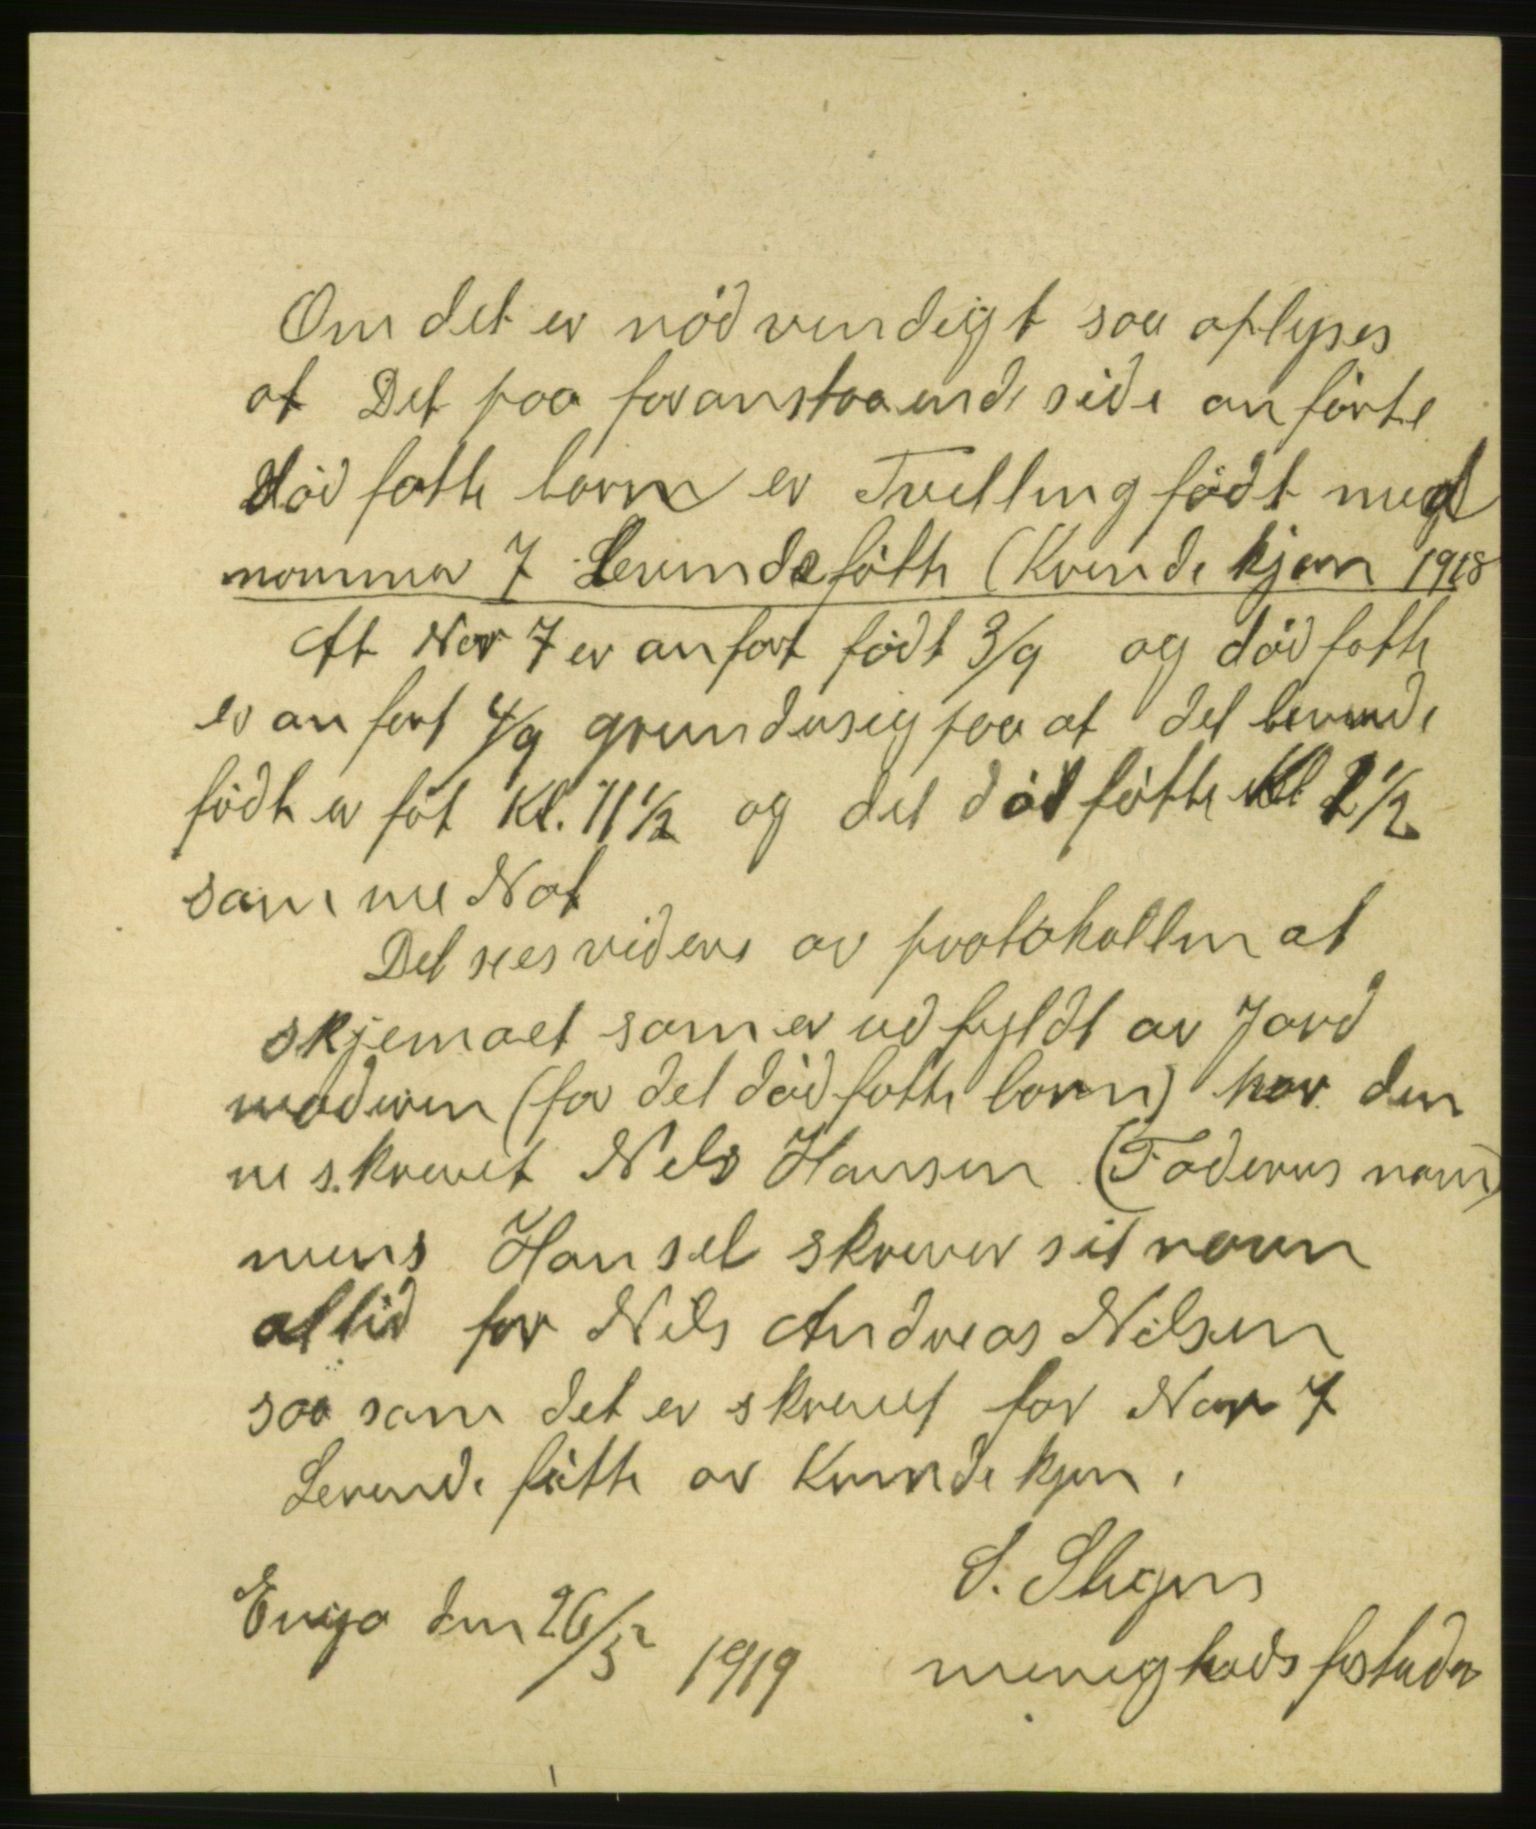 Om det er nödvendigt saa oplyses
at Det paa foranstaaende side anförte
död fötte barn er Tvelling födt med
nommer 7 Levende fötte (Kvinde kjøn 1918
At Nor 7 er anfört födt 3/9 og död fötte
er anfört 4/9 grunder sig paa at det levende
födte er föt Kl. 11 1/2 og det död fötte Kl 2 1/2
samme Nat
Det sees videre av protokollen at
skjemaet som er udfyldt av Jord
moderen (for det död fötte barn) har den
ne skrevet Nels Hansen (Faderens navn)
mens Han sel skrever sit navn
altid for Nils Andreas Nilsen
saa som det er skrevet for Nor 7
Levende fötte av Kvinde kjøn.
S.
den 26/5 1919 menigheds forstader